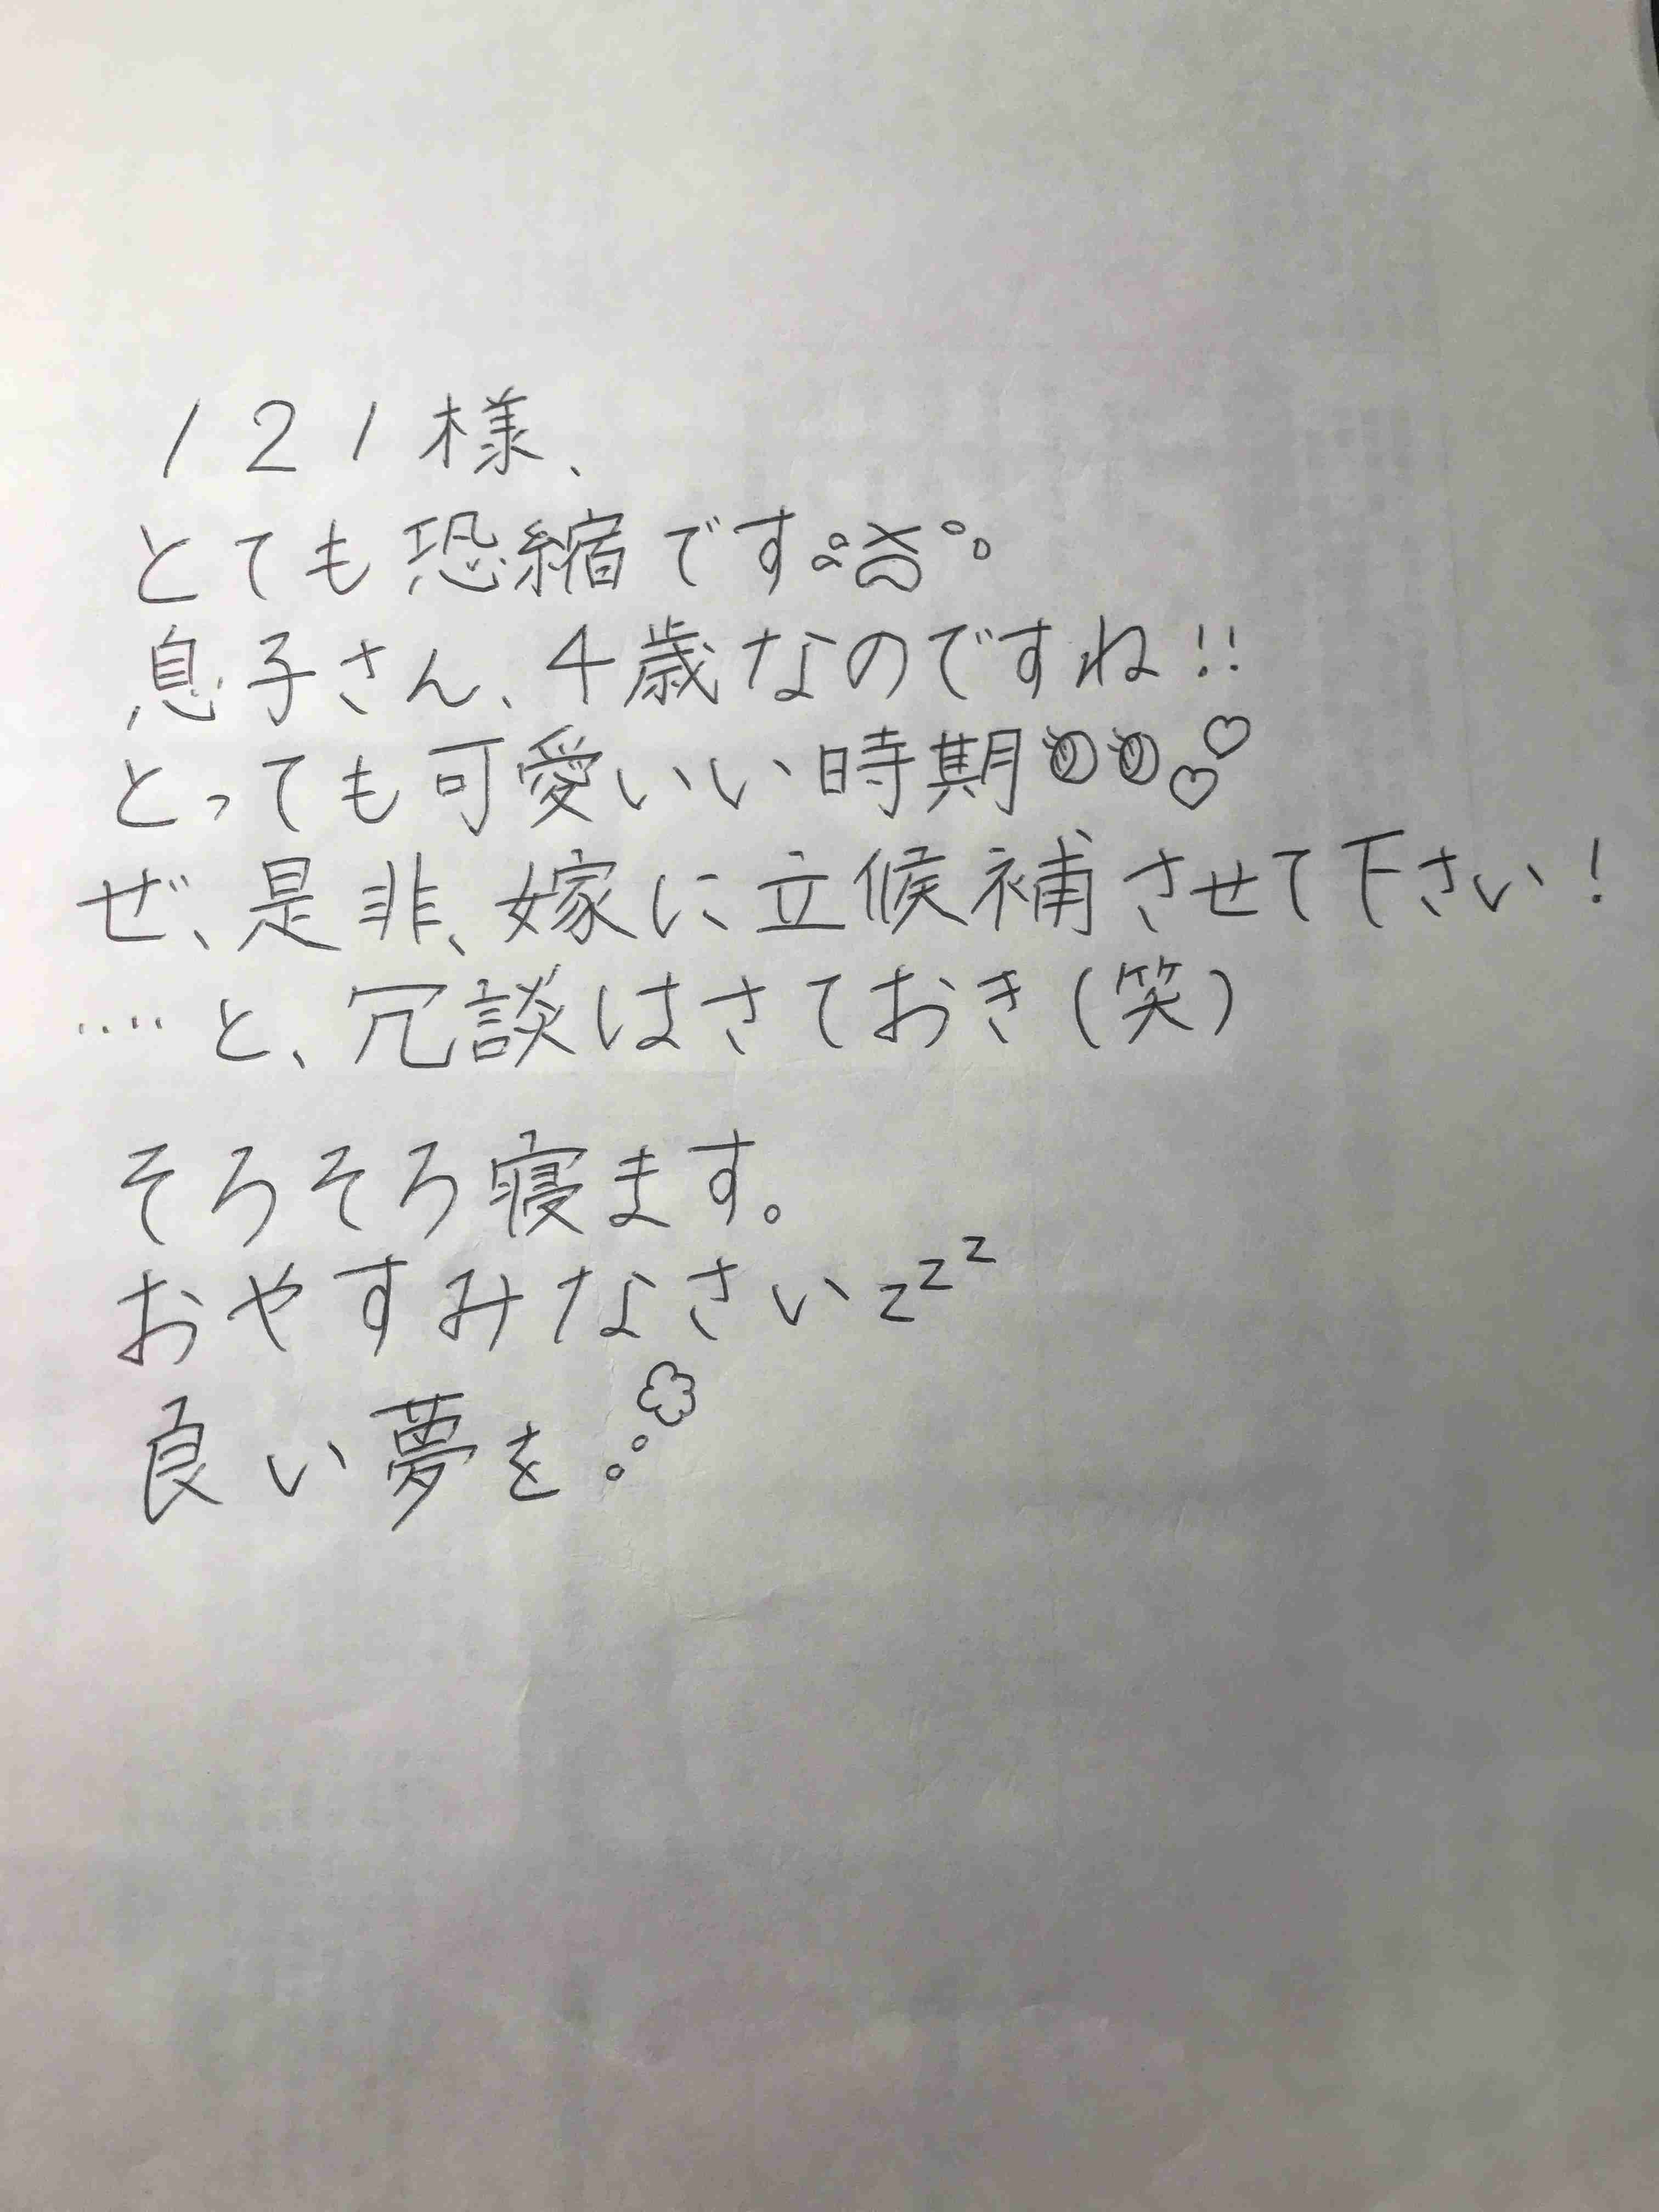 121様、
とても恐縮です
息子さん、4歳なのですね!!
とっても可愛いい時期
ぜ、是非、嫁に立候補させて下さい!
‥‥と、冗談はさておき(笑)
そろそろ寝ます。
おやすみなさいzzz
良い夢を